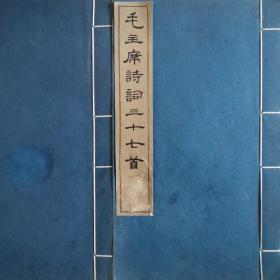 毛主席詩詞三十七首